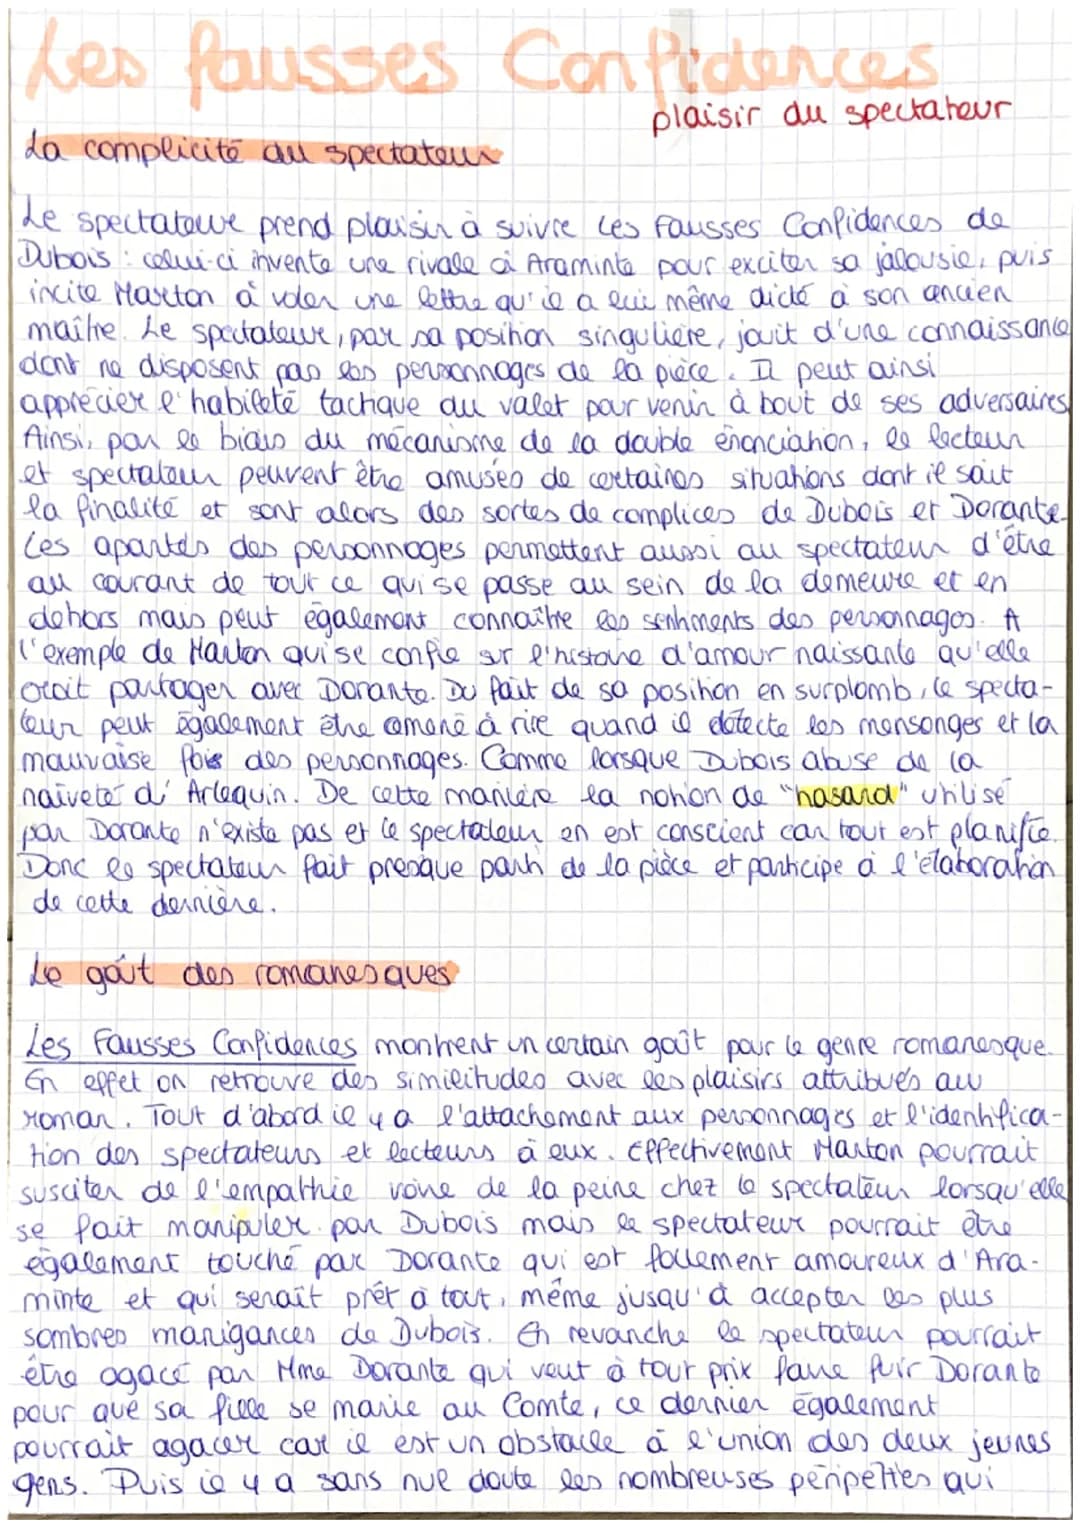 Les Fausses Confidences
plaisir du spectateur
La complicité du spectateur
Le spectateure prend plaisir à suivre Les Fausses Confidences de
Dubois : celui-ci invente une rivale à Araminte pour exciter sa jalousie, puis
incite Marton à voler une lettre qu'il a lui même dicté à son ancien
maître. Le spectateur, par sa position singulière, jouit d'une connaissance
dont ne disposent pas les personnages de la pièce. Il peut ainsi
apprécier l'habileté tactique du valet pour venir à bout de ses adversaires
Ainsi, par le biais du mécanisme de la double énonciation, le lecteur
et spectateur peuvent être amusés de certaines situations dont il sait
la finalité et sont alors des sortes de complices de Dubois et Dorante.
Les apartés des personnages permettent aussi au spectateur d'être
au courant de tout ce qui se passe au sein de la demeure et en
dehors mais peut également connaître les sentiments des personnages. A
l'exemple de Marton qui se confie sur l'histoire d'amour naissante qu'elle
croit partager avec Dorante. Du fait de sa position en surplomb, le specta-
teur peut également être amené à rire quand il détecte les mensonges et la
mauvaise fois des personnages. Comme lorsque Dubois abuse de la
naïveté d'Arlequin. De cette manière la notion de "hasard" utilisé
par Dorante n'existe pas et le spectateur en est conscient car tout est planifié.
Donc le spectateur fait presque parti de la pièce et participe à l'élaboration
de cette dernière.
Le goût des romanesques
Les Fausses Confidences montrent un certain goût pour le genre romanesque.
En effet on retrouve des similitudes avec les plaisirs attribués au
roman. Tout d'abord il y a l'attachement aux personnages et l'identifica-
tion des spectateurs et lecteurs à eux. Effectivement Marton pourrait
susciter de l'empathie voire de la peine chez le spectateur lorsqu'elle
se fait manipuler par Dubois mais le spectateur pourrait être
également touché par Dorante qui est follement amoureux d'Ara-
minte et qui serait prêt à tout, même jusqu'à accepter les plus
sombres manigances de Dubois. En revanche le spectateur pourrait
être agacé par Mme Dorante qui veut à tout prix faire fuir Dorante
pour que sa fille se marie au Comte, ce dernier également
pourrait agacer car il est un obstacle à l'union des deux jeunes
gens. Puis il y a sans nul doute les nombreuses péripéties qui